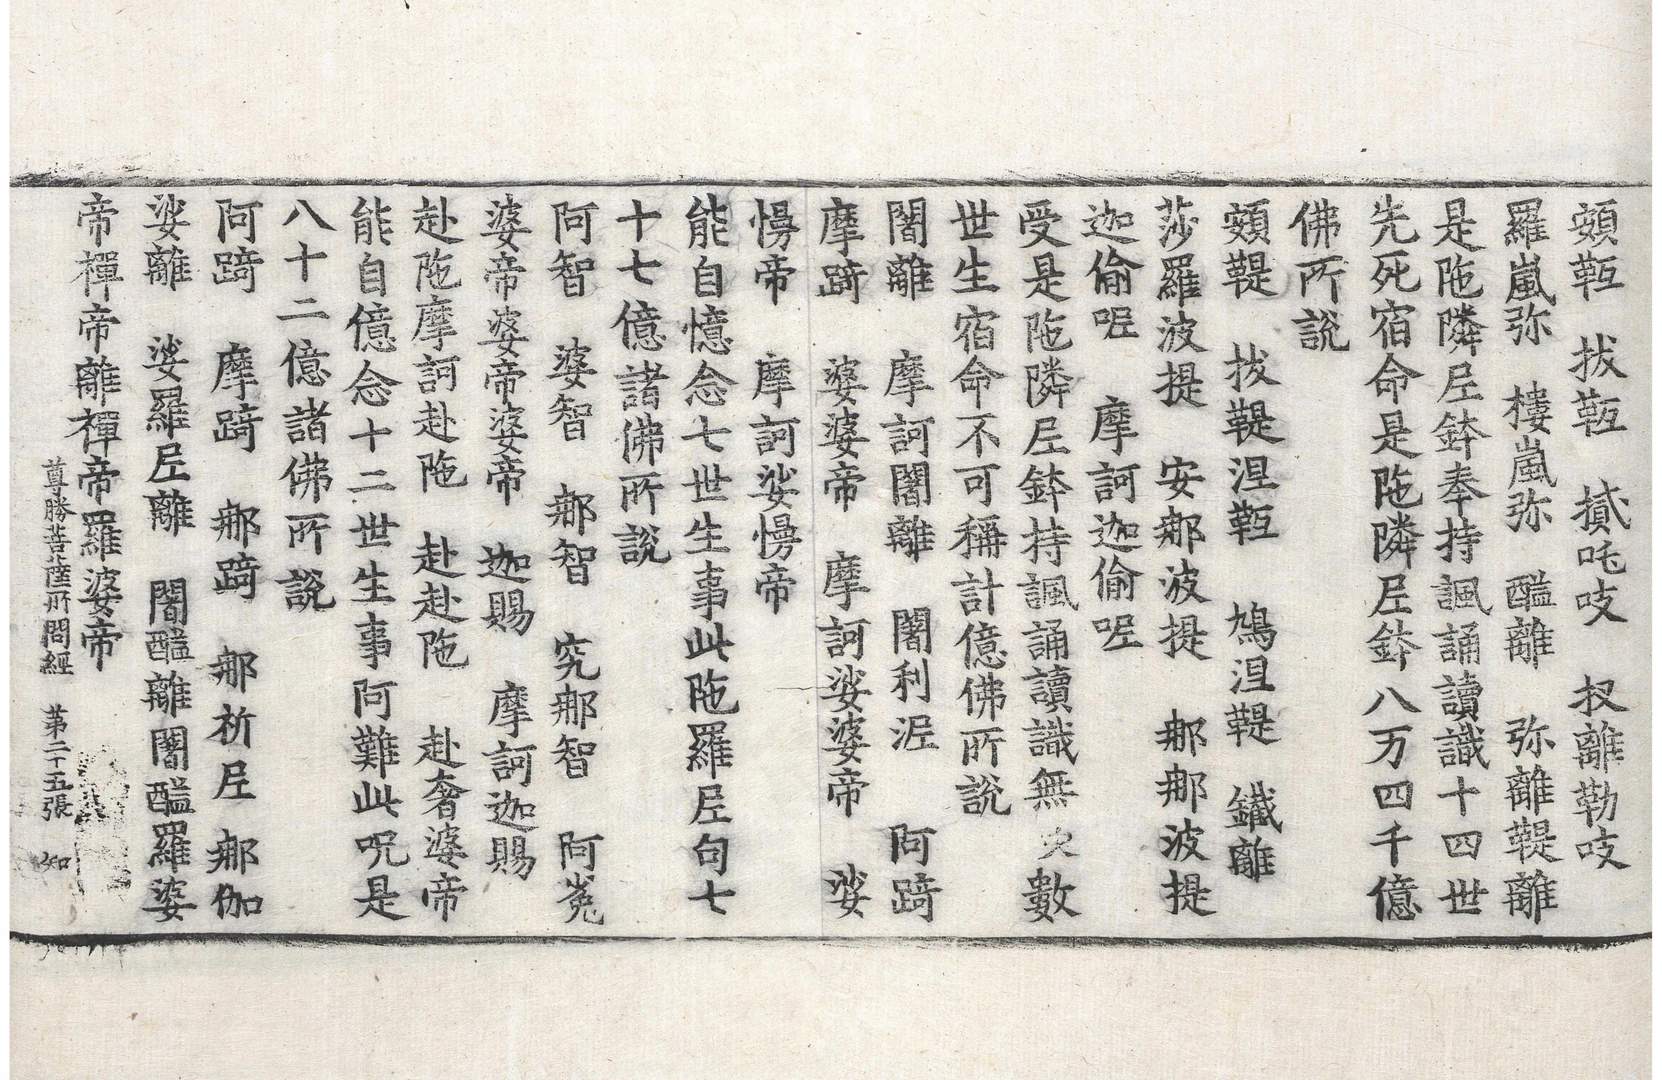 頞䩭 拔䩭 貳吒吱 扠離勒吱
羅嵐弥 樓嵐弥 醯離 弥離鞮離
是陁隣𡰱鉢奉持諷誦讀識十四世
先死宿命是陁隣𡰱鉢八万四千億
佛所說
頞鞮 拔鞮涅䩭 鳩涅鞮 鐵離
莎羅波提 安那波提 那那波提
迦偷呢 摩訶迦偷呢
受是陁隣𡰱鉢持諷誦讀識無央數
世生宿命不可稱計億佛所說
闍離 摩訶闍離 闍利涺 阿踦
摩踦 婆婆帝 摩訶娑婆帝 娑
慢帝 摩訶娑慢帝
能自憶念七世生事此陁羅𡰱句七
十七億諸佛所說
阿智 婆智 那智 究那智 阿㝹
婆帝婆帝婆帝 迦賜 摩訶迦賜
赴陁摩訶赴陁 赴赴陁 赴奢婆帝
能自億念十二世生事阿難此呪是
八十二億諸佛所說
阿踦 摩踦 那踦 那祈𡰱 那伽
娑離 娑羅𡰱離 闍醯離闍醯羅婆
帝禪帝離禪帝羅婆帝
尊勝菩薩所問經 第二十五張 知